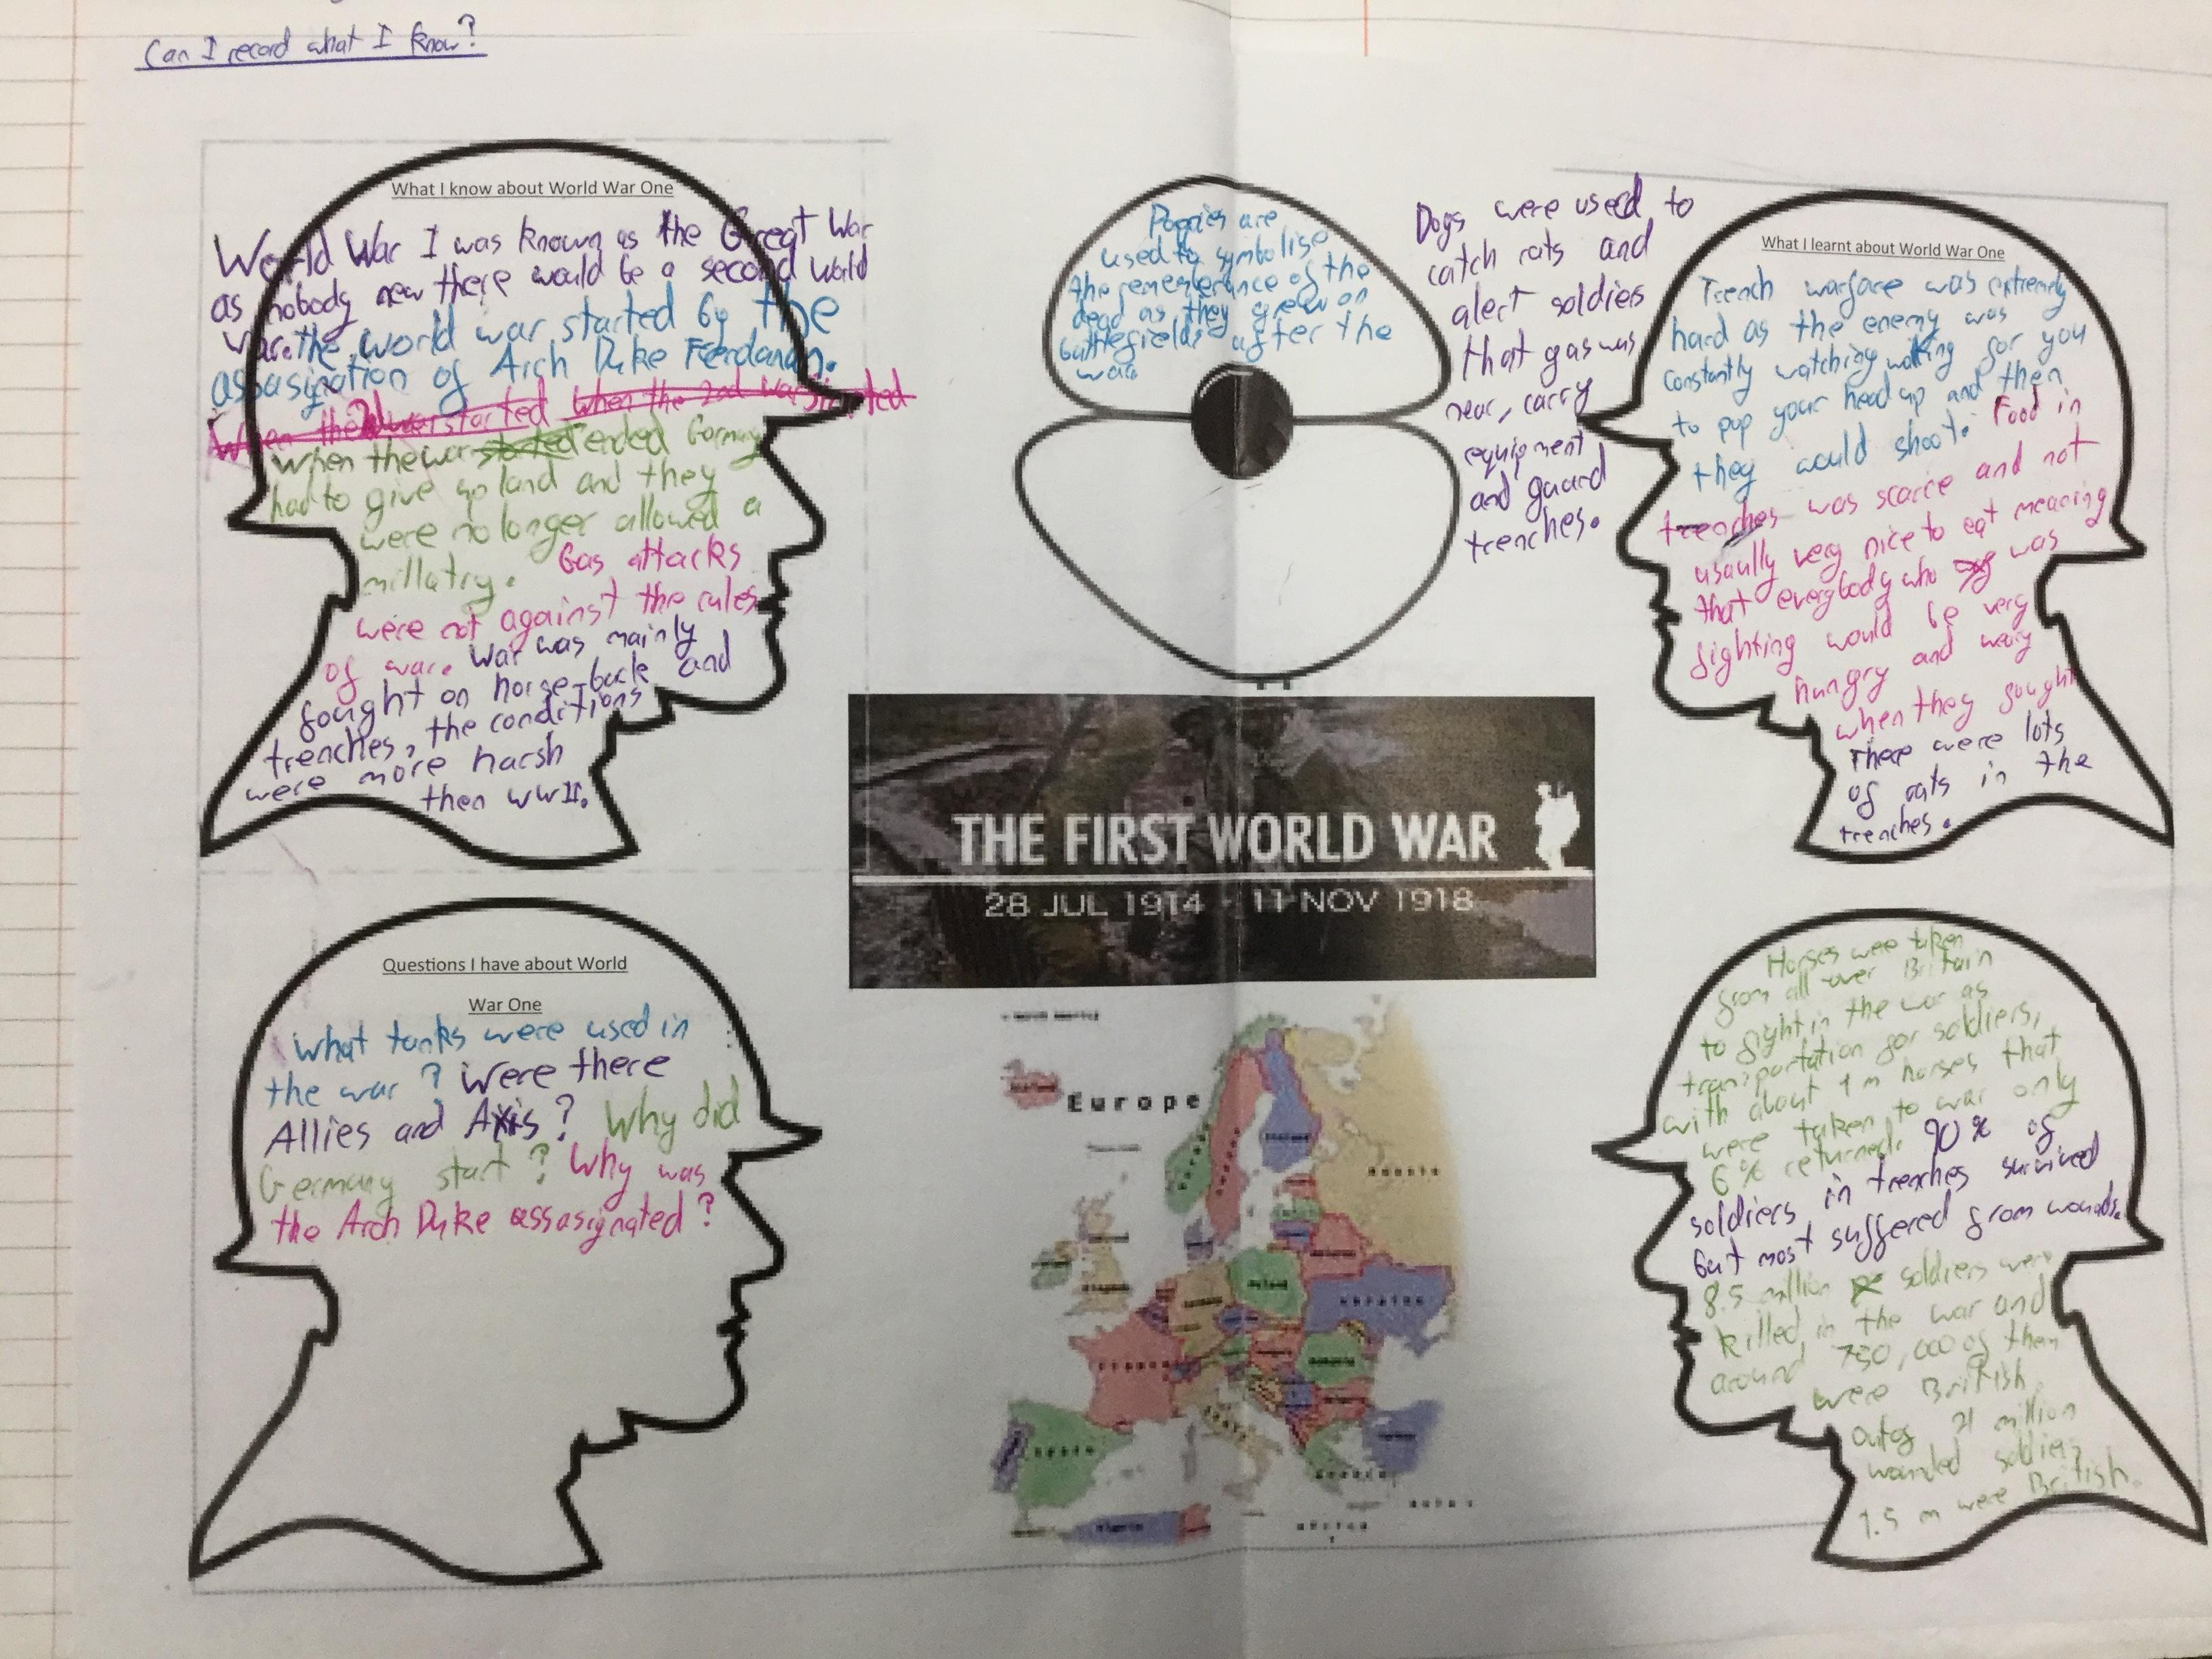 Can I record what I know?
What I know about World War One
World War I was known as the Great War
as nobody new there would be a second World
War. the world war started by the
assasination of Arch Duke Ferdanan.
When the war started When the 2nd war started
when the war started ended Germany
had to give up land and they
were no longer allowed a
millatry. Gas attacks
were not against the rules
of war. War was mainly
fought on horse-back and
trenches, the conditions
were more harsh
then WWII.
Poppies are
used to symbolise
the rememberance of the
dead as they grew on
battlefields after the
war.
Dogs were used to
catch rats and
alert soldiers
that gas was
near, carry
equipment
and guard
trenches.
What I learnt about World War One
Trench warfare was extremely
hard as the enemy was
constantly watching waiting for you
to pop your head up and then
they would shoot. Food in
trenches was scarce and not
usaully very nice to eat meaning
that everybody who was
fighting would be very
hungry and weary
when they fought
There were lots
of rats in the
trenches.
THE FIRST WORLD WAR
28 JUL 1914 - 11 NOV 1918
Questions I have about World
War One
What tanks were used in
the war? Were there
Allies and Axis? Why did
Germany start? Why was
the Arch Duke assasignated?
Europe
Russia
Ukraine
Poland
France
Spain
Italy
Greece
Algeria
Africa
Horses were taken
from all over Britain
to fight in the war as
transportation for soldiers,
with about 1 m horses that
were taken to war only
6% returned. 90% of
soldiers in trenches survived
but most suffered from wounds.
8.5 million soldiers were
killed in the war and
around 750,000 of them
were British
outof 21 million
wounded soldiers
1.5 m were British.